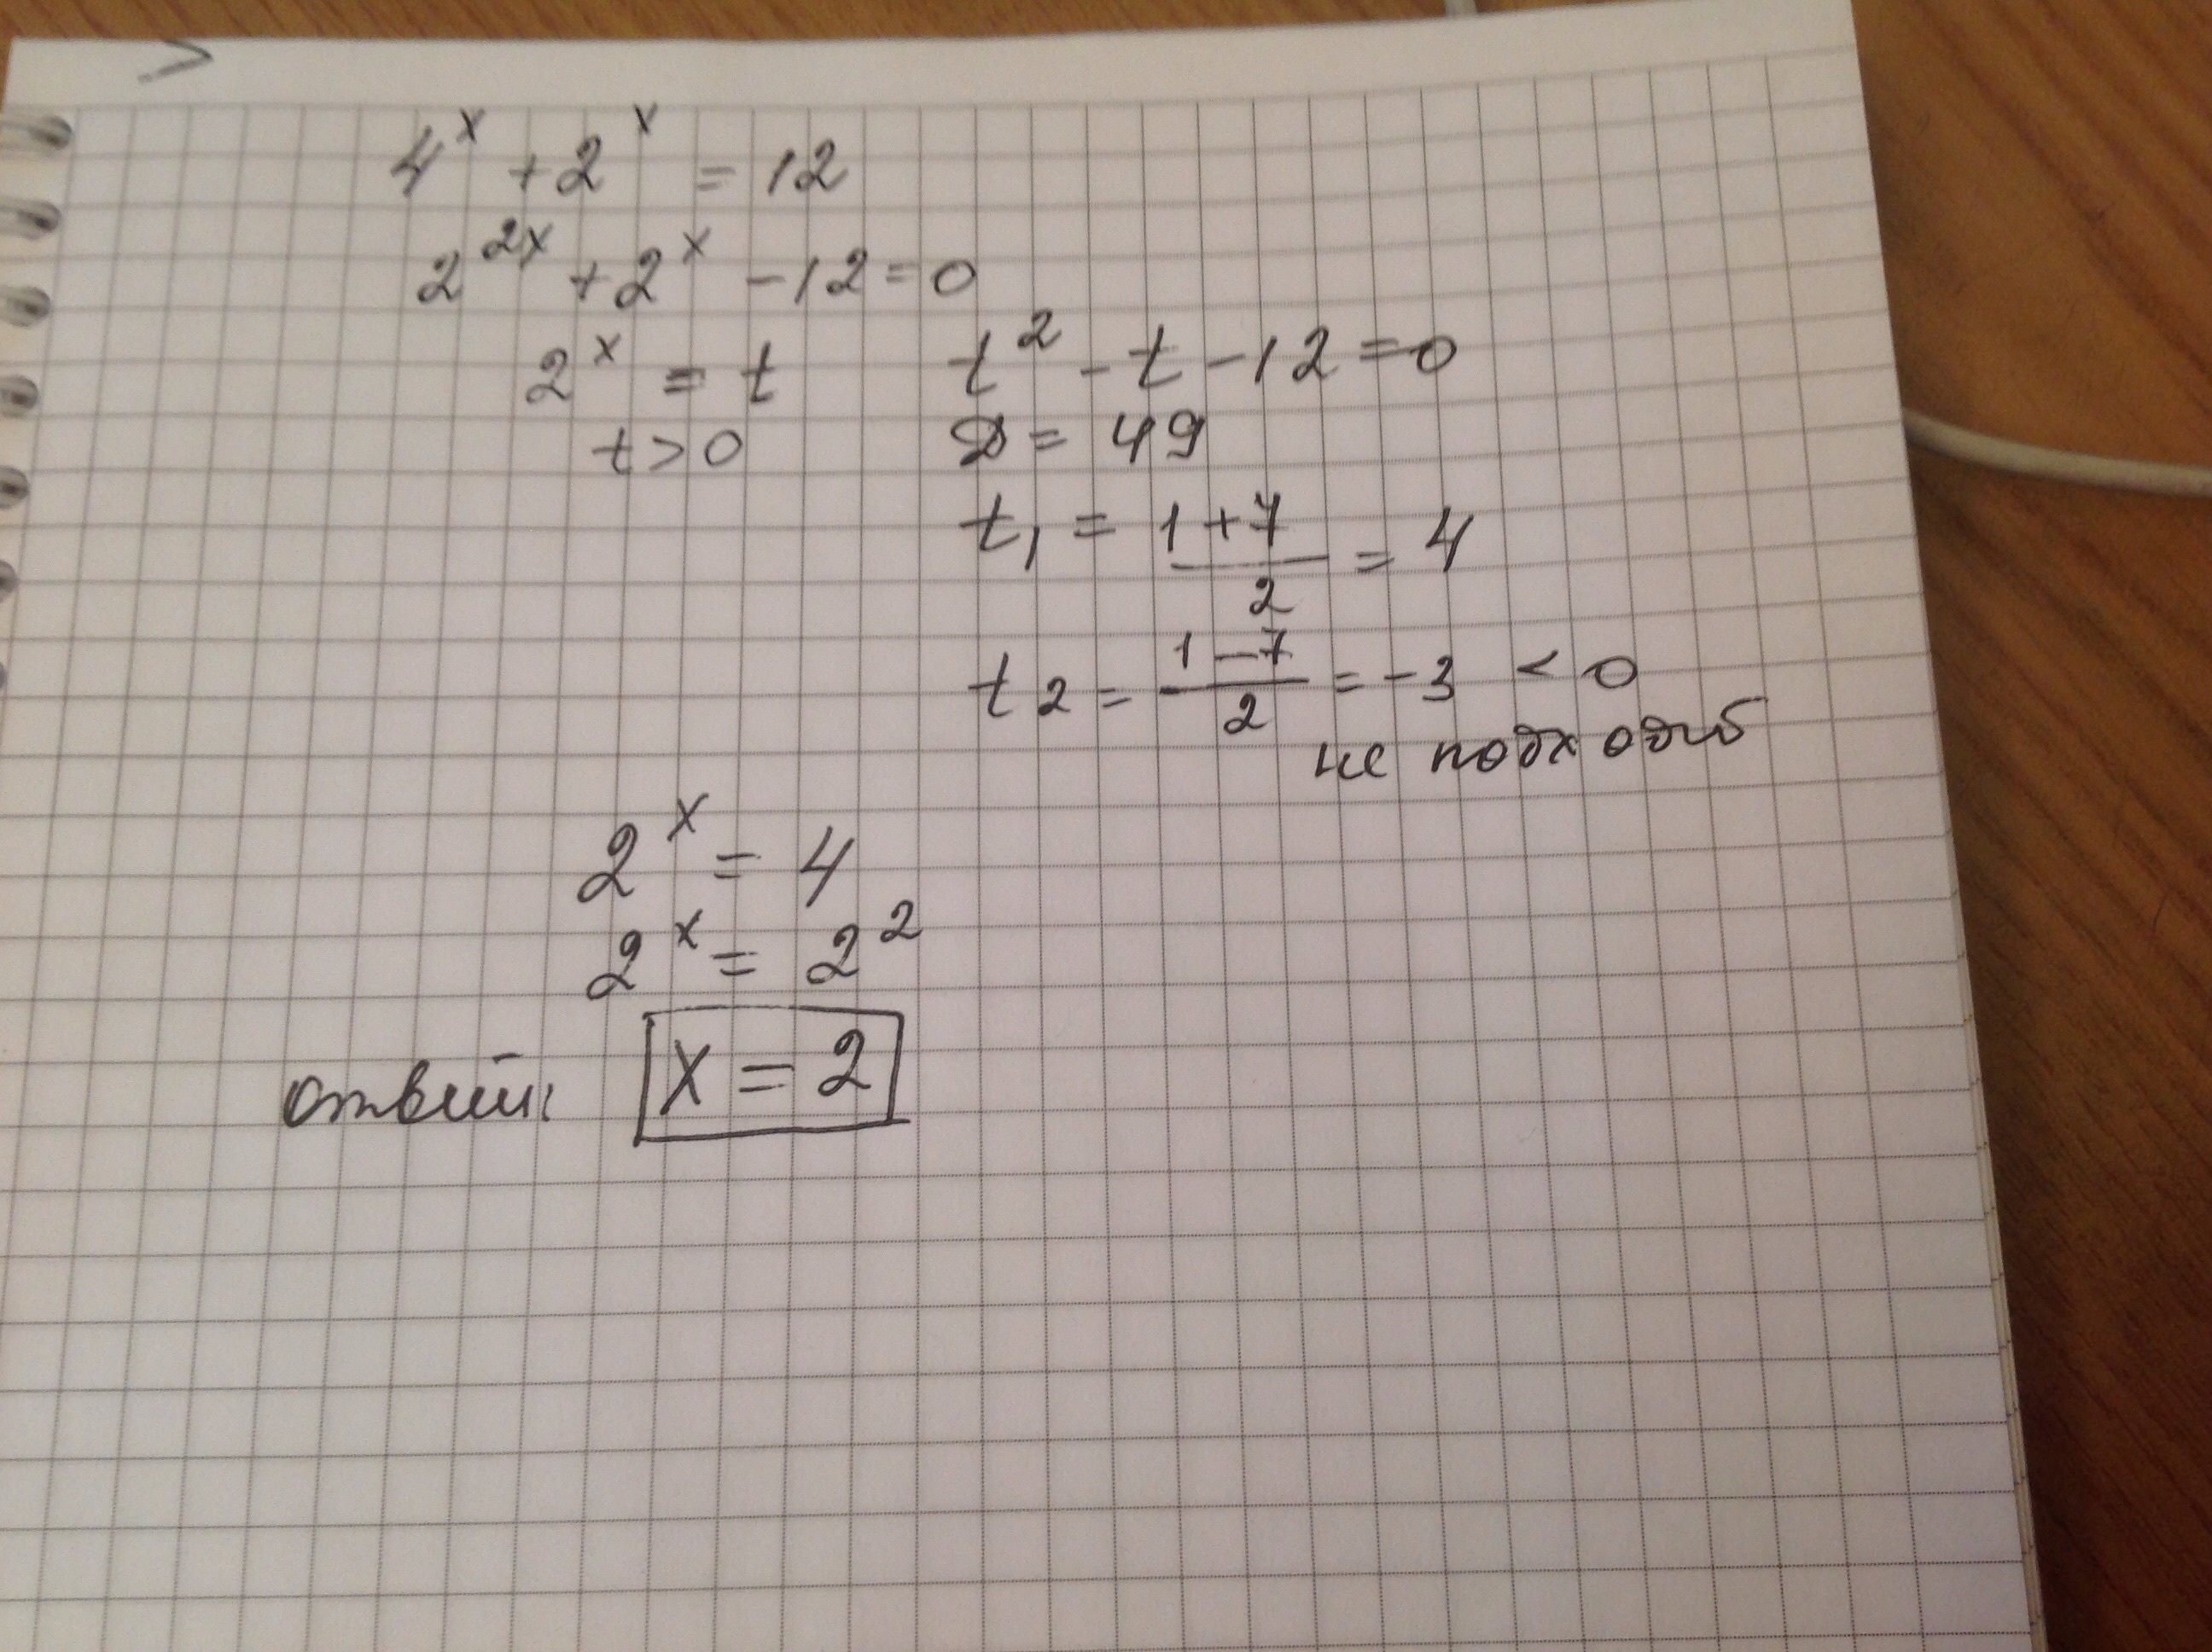 >
4^x + 2^x = 12
2^2x + 2^x - 12 = 0
2^x = t
t > 0
t^2 - t - 12 = 0
D = 49
t1 = (1 + 7)/2 = 4
t2 = (1 - 7)/2 = -3 < 0
не подходит
2^x = 4
2^x = 2^2
ответ: x = 2